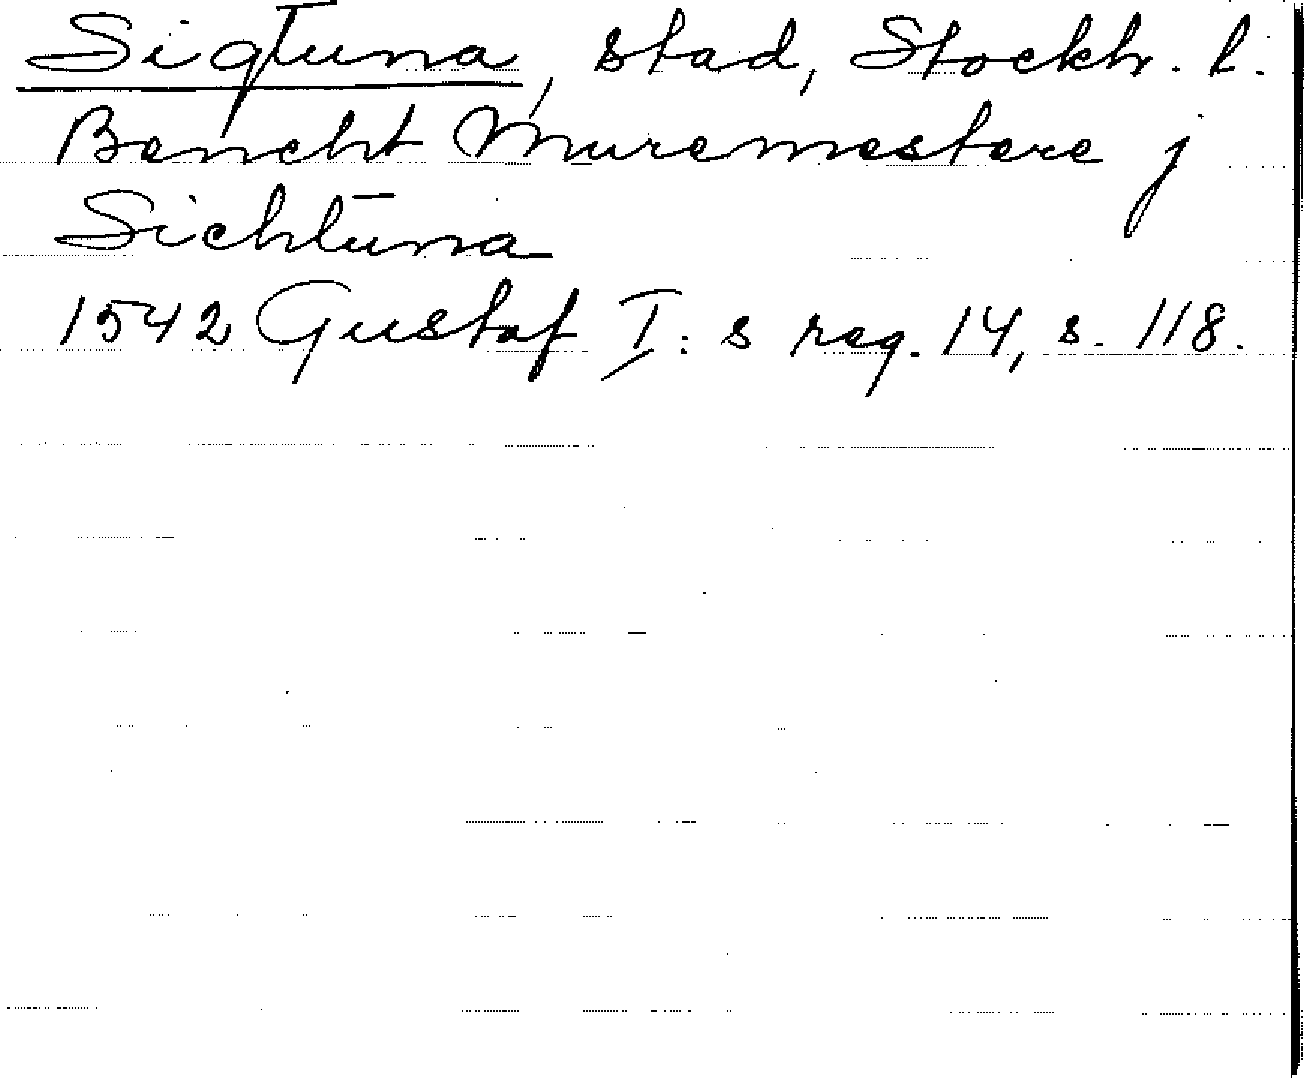 Sigtuna, stad, Stockh. l.
Bencht Muremestere j
Sichtuna
1542 Gustaf I: s reg. 14, s. 118.